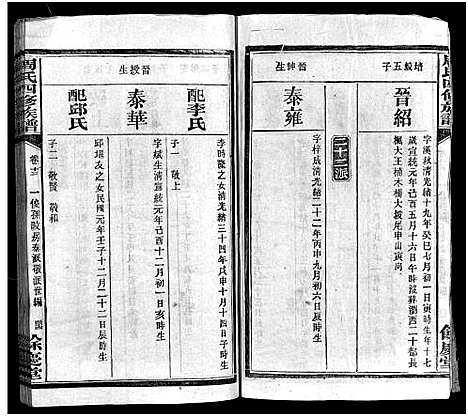 周氏四修族譜
餘慶堂
培毅五子
晉紹
字漢秋清光緒十九年癸巳七月初一日寅時生年十七
歲宣統元年己酉五月十六日午時沒葬瀏西二十都長
楓大王植木橋大坡尾甲山寅向
二十二派
晉鉮生
泰雍
字梓成清光緒二十二年丙申九月初六日辰時生
晉授生
配李氏
李時俊之女清光緒三十四年戊申十月十四日子時生
子一 敬上
泰華
字斌生清宣統元年己酉十二月初一日亥時生
配邱氏
邱堪友之女民國元年壬子十二月二十二日辰時生
子二 敬賢 敬和
周氏四修族譜
卷十三
餘慶堂